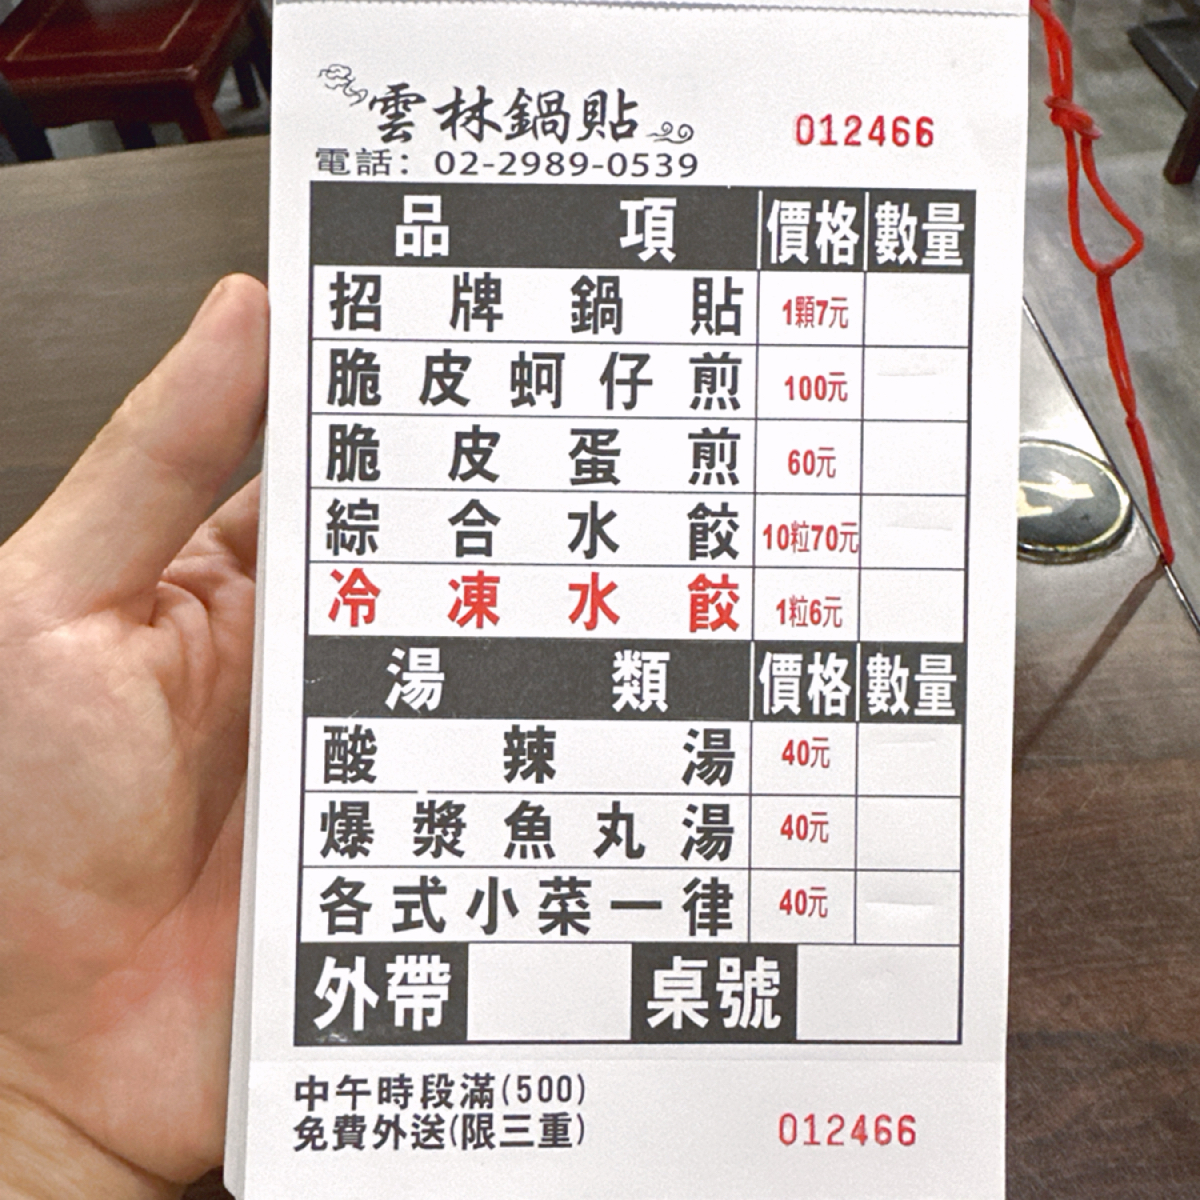 雲林鍋貼
012466
電話：02-2989-0539
品項 價格 數量
招牌鍋貼 1顆7元
脆皮蚵仔煎 100元
脆皮蛋煎 60元
綜合水餃 10粒70元
冷凍水餃 1粒6元
湯類 價格 數量
酸辣湯 40元
爆漿魚丸湯 40元
各式小菜一律 40元
外帶 桌號
中午時段滿(500)
免費外送(限三重)
012466